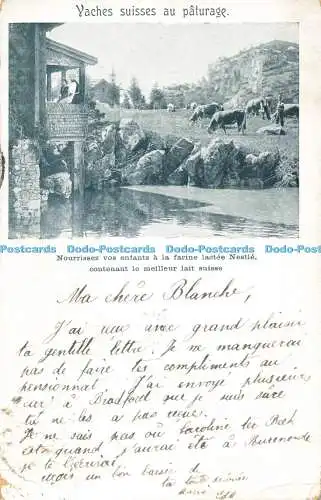 Vaches suisses au pâturage.
Postcards Postcards Postcards Postcards Postcards
Nourrissez vos enfants à la farine lactée Nestlé,
contenant le meilleur lait suisse
Ma chère Blanche,
J'ai reçu avec grand plaisir
ta gentille lettre. Je ne manquerai
pas de faire tes compliments au
pensionnat. J'ai envoyé plusieurs
à Bradford que je suis
tu ne les a pas
Je ne sais pas où Caroline
est quand j'aurai été à
je te
mais un bon baiser de
ta